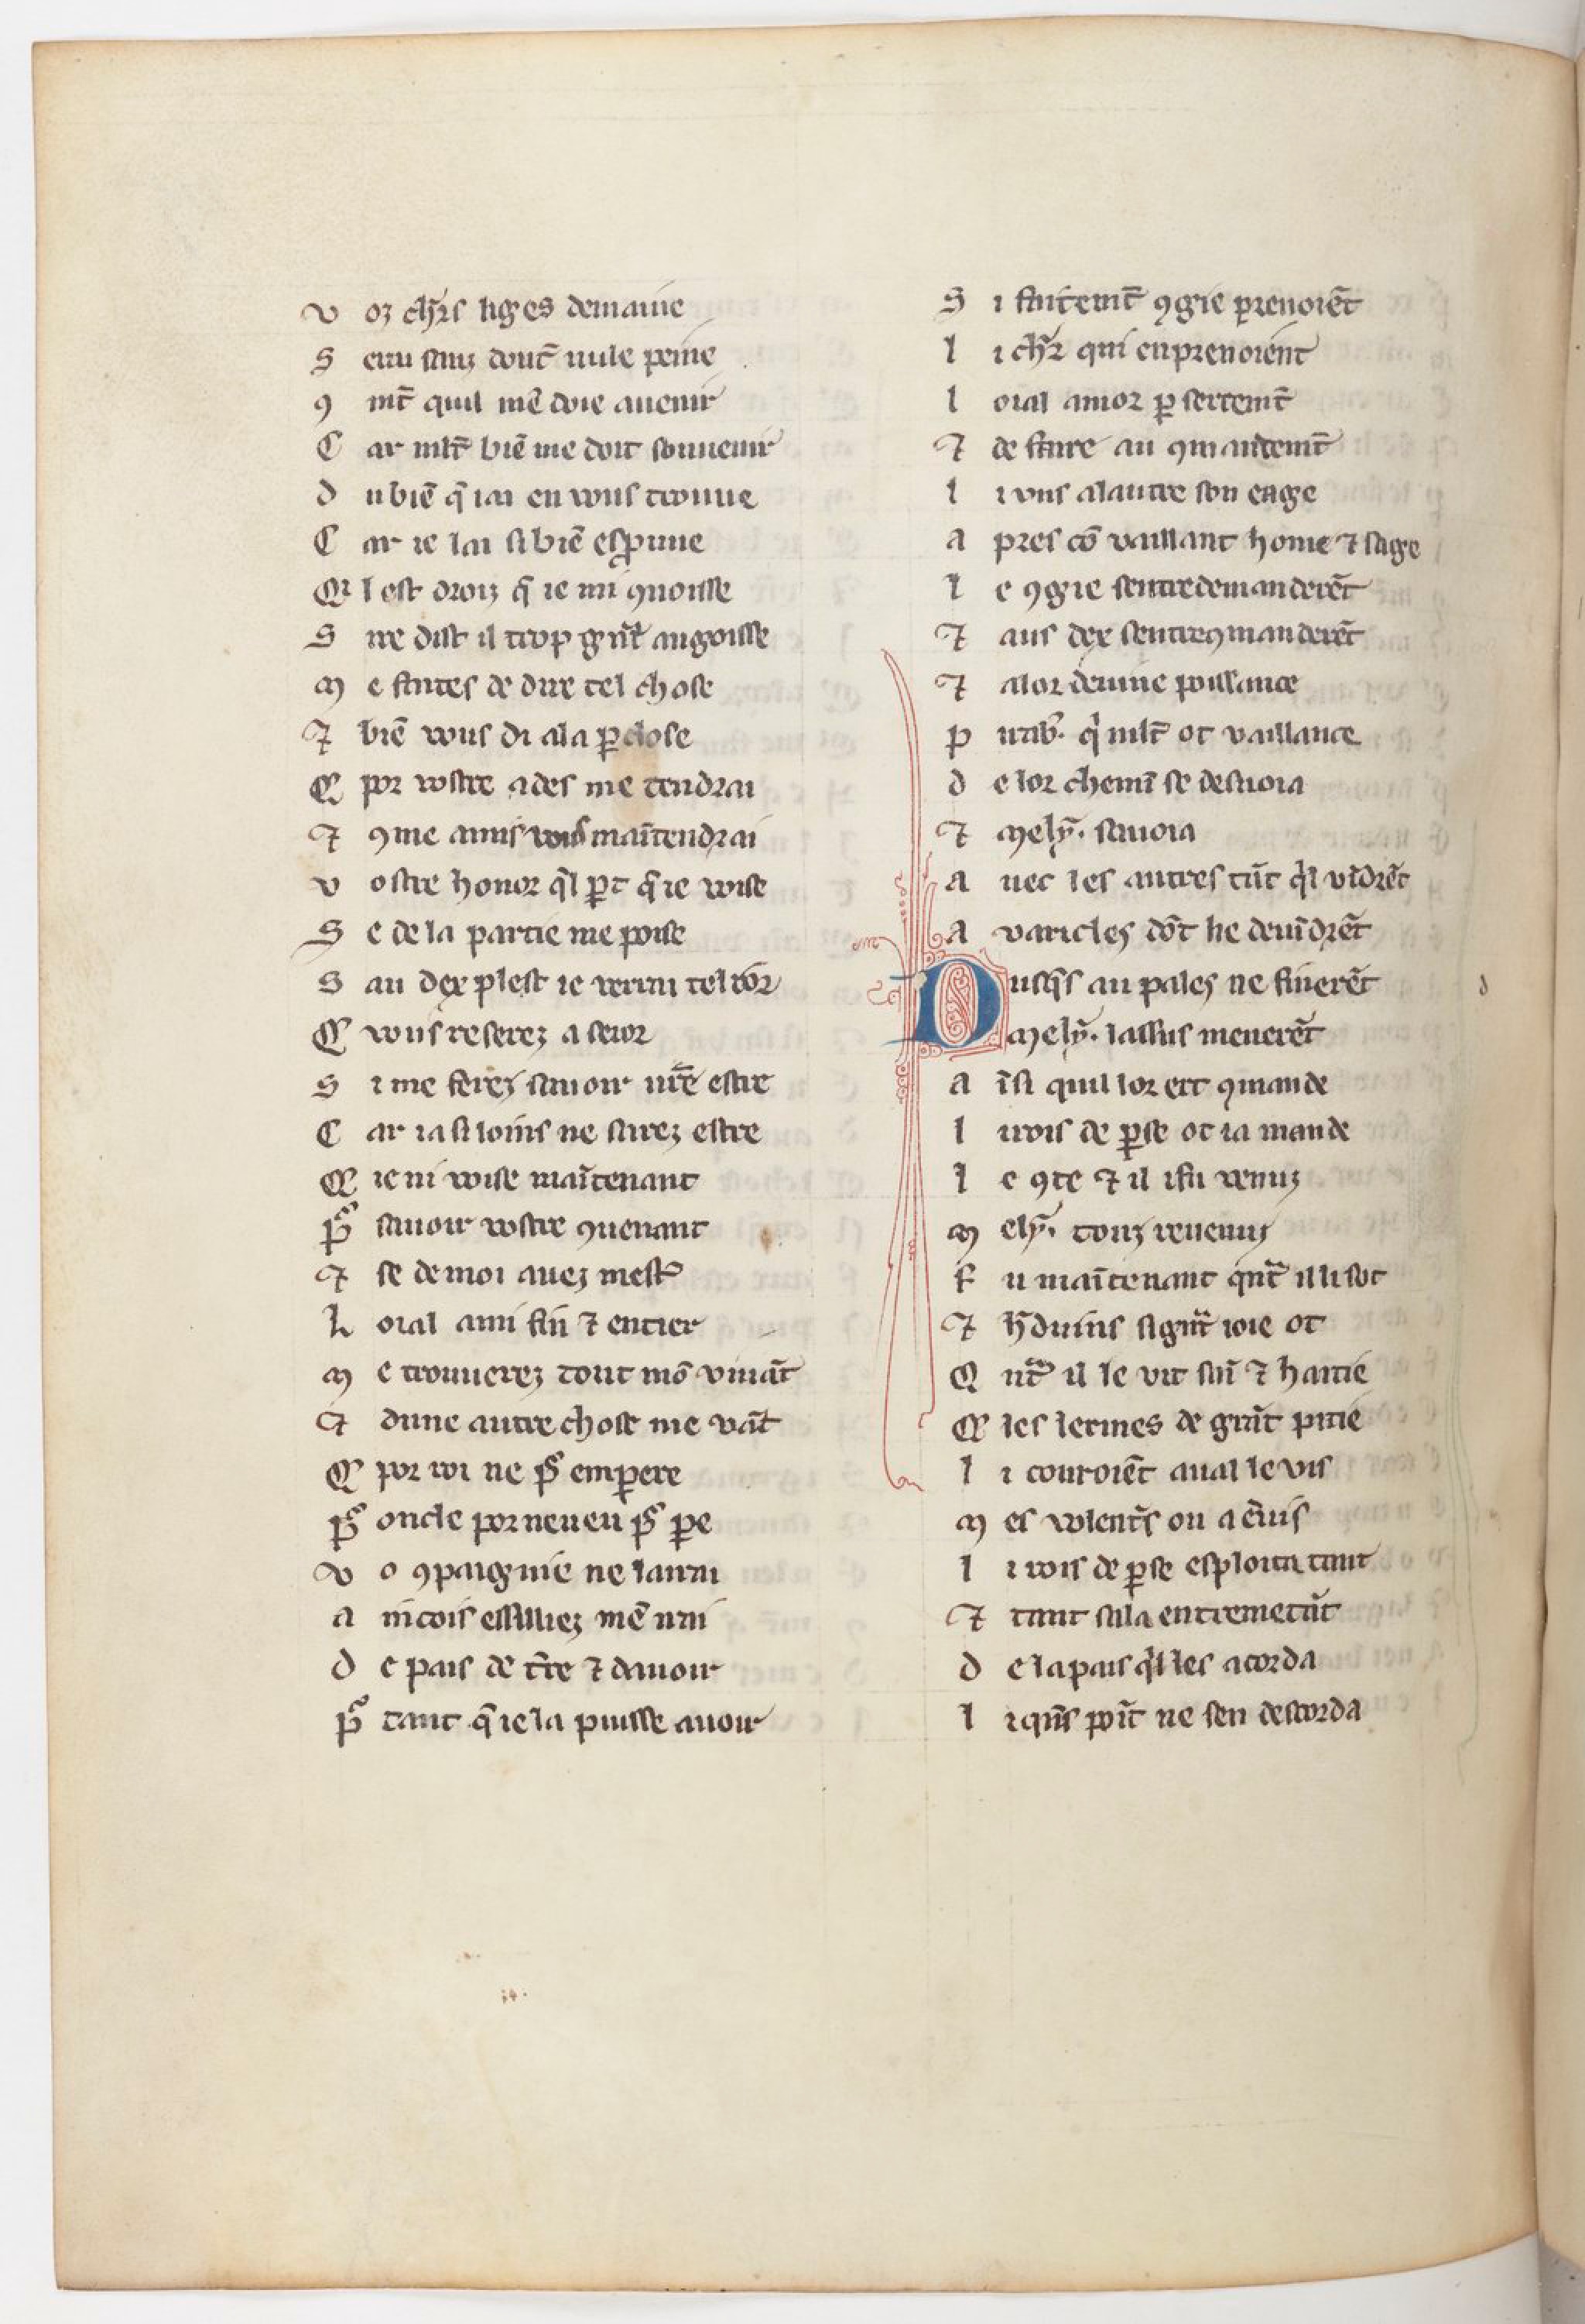 v oz chꝛs liges demaine
S erui sanz dout̄ nule peine
ꝯ mt̄ quil mē doie auenir
C ar mlt̄ biē me doit souuenir
d u biē q̄ iai en vous trouue
C ar ie lai si biē esproune
Q il est droiz q̄ ie mi ꝯnoisse
S ire dist il trop gͣnt angoisse
m e faites de dire tel chose
⁊ biē vous di a la ꝑclose
Q por vostre ades me tendrai
⁊ ꝯme amis vous maītendrai
v ostre honor q̄l ꝑt q̄ ie voise
S e de la partie me poise
S au dex plest ie verrai tel ior
Q vous reserez a seior
S i me ferez sauoir urē estre
C ar ia si loins ne sirez estre
Q ie ni voise maītenant
pͬ sauoir vostre ꝯuenant
⁊ se de moi auez mestꝰ
L oial ami fin ⁊ entier
m e trouuerez tout mō viuāt
⁊ dune autre chose me vāt
Q por roi ne pͬ emꝑere
pͬ oncle por neueu pͬ ꝑe
v o ꝯpaignie ne lairai
a incois essilliez mē irai
d e pais de t̄re ⁊ dauoir
pͬ tant q̄ ie la puisse auoir
S i faitemt̄ ꝯgie prenoiēt
l i chꝛ qui enprenoient
l oial amor ꝑ sertemt̄
⁊ de faire au ꝯmandemt̄
l i vns a lautre son eage
a pres cō vaillant home ⁊ sage
l e ꝯgie sentredemanderēt
⁊ aus dex sentreꝯmanderēt
⁊ a lor deuine poissance
p urab̕. qͥ mlt̄ ot vaillance
d e lor chemī se desuoia
⁊ mely̾. sauoia
a uec les autres tāt q̄l vīdrēt
a varicles dōt he deuīdrēt
D usq̄s au palez ne finerēt
mely̾. lassus menerēt
a īsi quil lor ert ꝯmande
l i rois de ꝑse ot ia mande
l e ꝯte ⁊ il i fu venuz
m ely̾. touz reuenuz
F u maītenant qͣnt il li sot
⁊ h̄duins si gͣnt ioie ot
Q nͣt il le vit sāi ⁊ haitie
Q les lermes de gͣnt pitie
l i couroiēt aual le vis
m es volent̄s ou a ēuis
l i rois de ꝑse esploita tant
⁊ tant sala entremetāt
d e la pais q̄l les acorda
l i qͥns poīt ne sen descorda
d